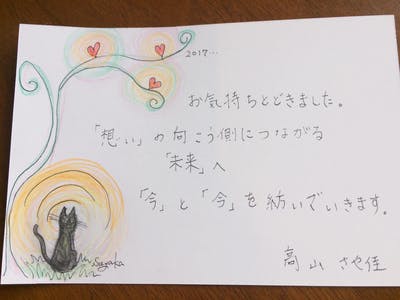 2017...
お気持ちとどきました。
「想い」の向こう側につながる
「未来」へ
「今」と「今」を紡いでいきます。
高山 さや佳
Sayaka